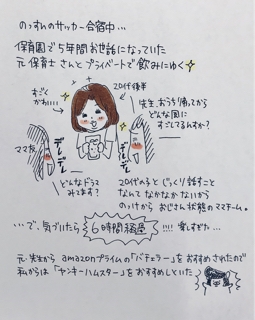 のっすんのサッカー合宿中…
保育園で5年間お世話になっていた
元保育士さんとプライベートで飲みにゆく
すごく
かわいい
20代後半
先生、おうち帰ってから
どんな風に
すごしてるんすか?
ママ友
デレデレ
デレデレ
どんなドラマ
みてます?
20代の子とじっくり話すこと
なんてなかなかないから
のっけからおじさん状態のママチーム。
…で、気づいたら
6時間経過
!!!!
楽しすぎた…
元先生から amazonプライムの「バチェラー」をおすすめされたので
私からは「ヤンキーハムスター」をおすすめしていた